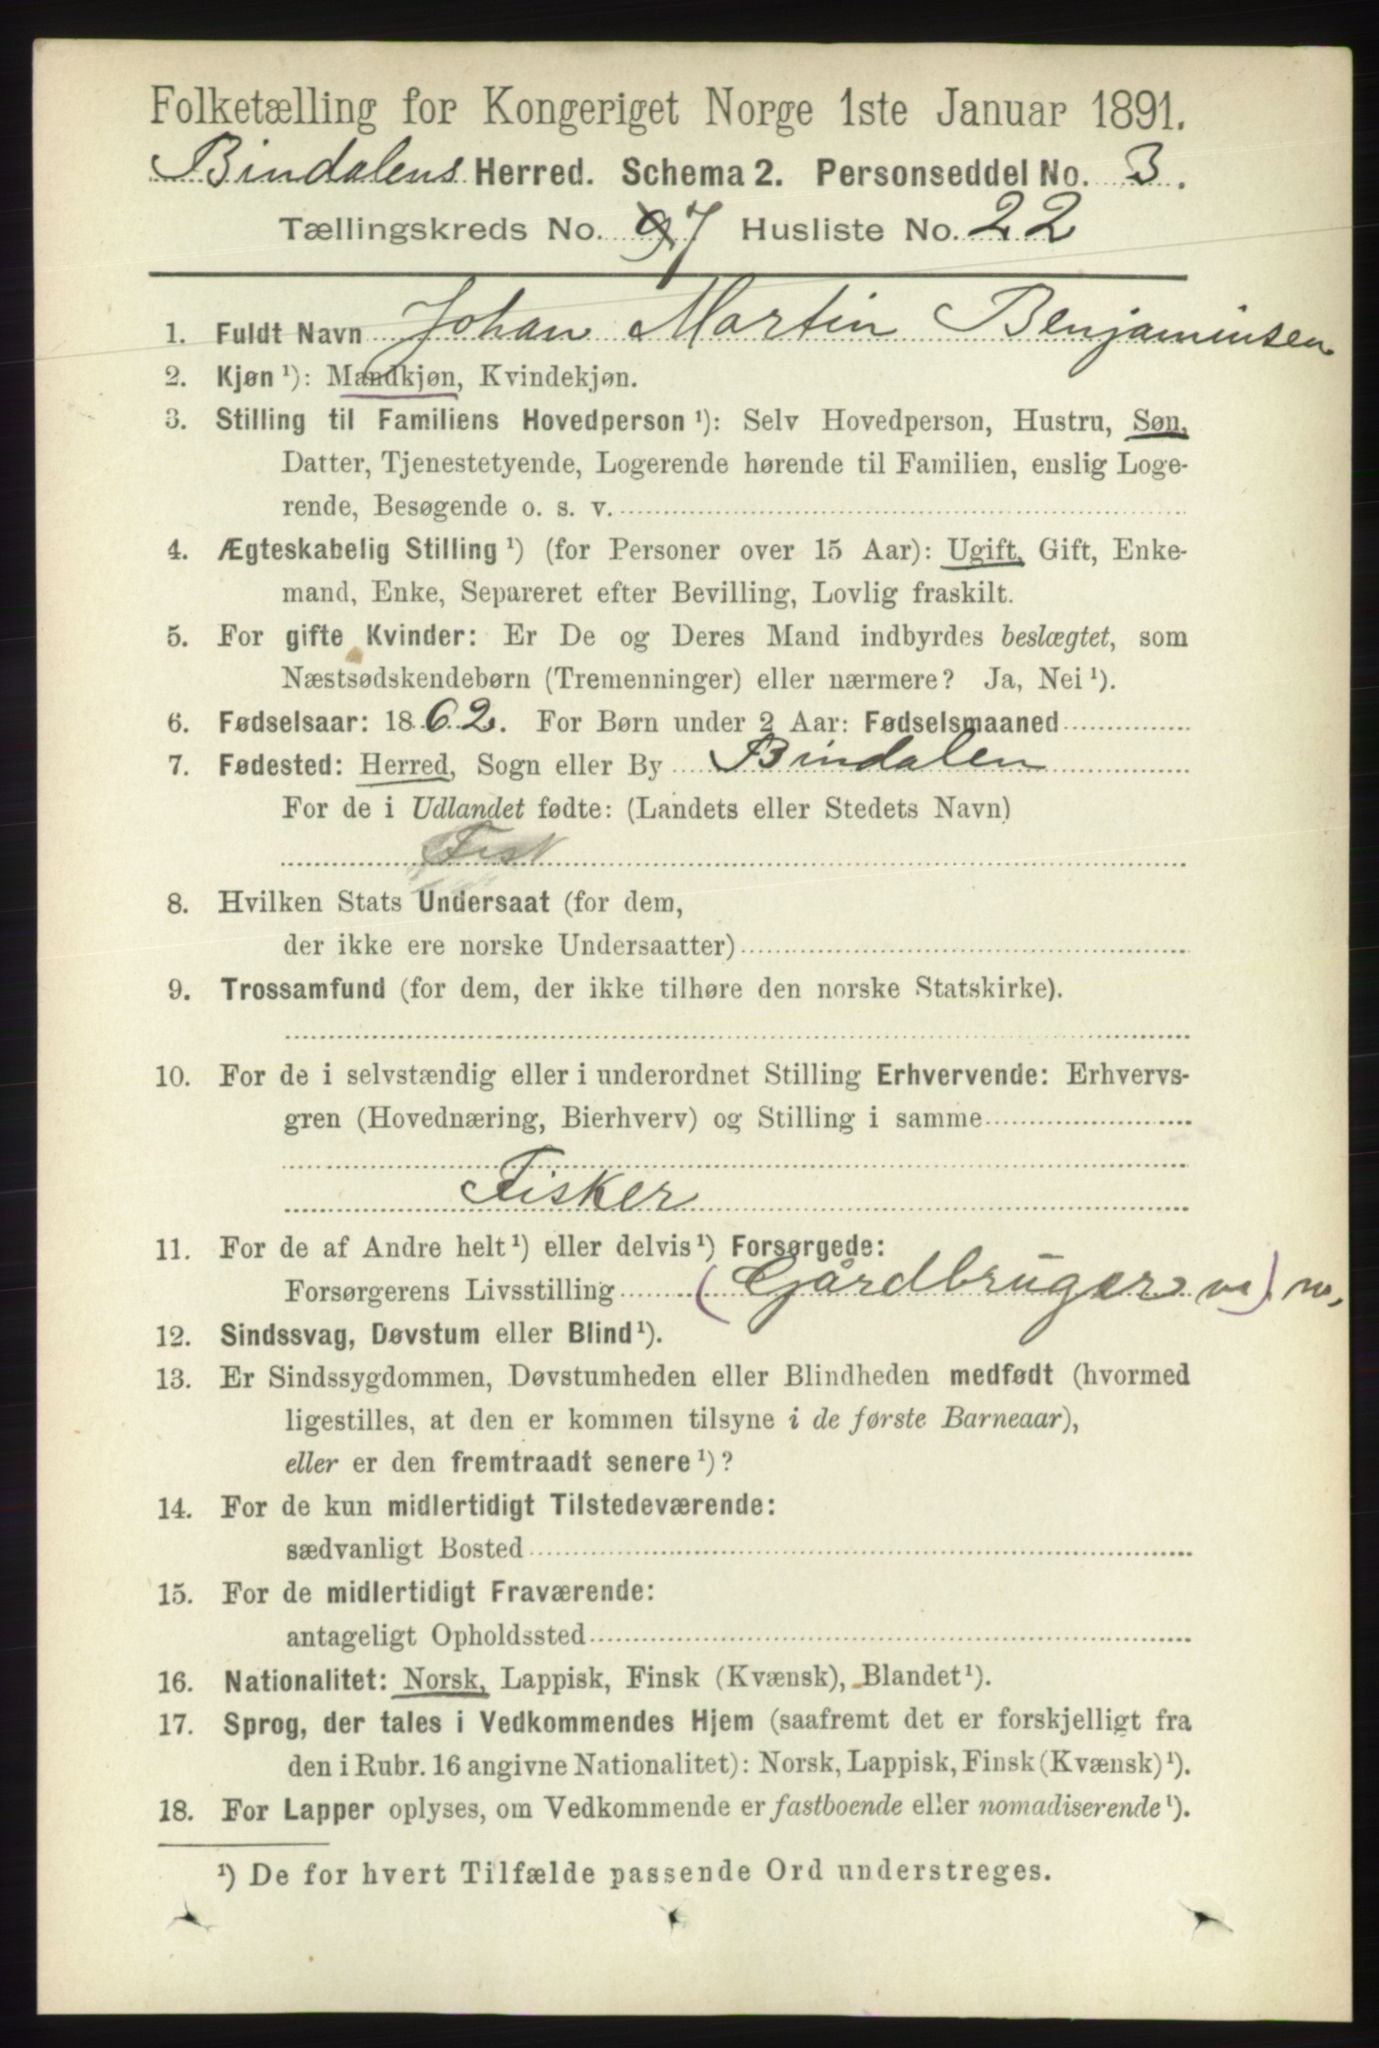 Folketælling for Kongeriget Norge 1ste Januar 1891.
Bindalens Herred. Schema 2. Personseddel No. 3.
Tællingskreds No. 7 Husliste No. 22
1. Fuldt Navn Johan Martin Benjaminsen
2. Kjøn ¹): Mandkjøn, Kvindekjøn.
3. Stilling til Familiens Hovedperson ¹): Selv Hovedperson, Hustru, Søn,
Datter, Tjenestetyende, Logerende hørende til Familien, enslig Loge-
rende, Besøgende o. s. v.
4. Ægteskabelig Stilling ¹) (for Personer over 15 Aar): Ugift, Gift, Enke-
mand, Enke, Separeret efter Bevilling, Lovlig fraskilt.
5. For gifte Kvinder: Er De og Deres Mand indbyrdes beslægtet, som
Næstsødskendebørn (Tremenninger) eller nærmere? Ja, Nei ¹).
6. Fødselsaar: 1862. For Børn under 2 Aar: Fødselsmaaned
7. Fødested: Herred, Sogn eller By Bindalen
For de i Udlandet fødte: (Landets eller Stedets Navn)
Fisk
8. Hvilken Stats Undersaat (for dem,
der ikke ere norske Undersaatter)
9. Trossamfund (for dem, der ikke tilhøre den norske Statskirke).
10. For de i selvstændig eller i underordnet Stilling Erhvervende: Erhvervs-
gren (Hovednæring, Bierhverv) og Stilling i samme
Fisker
11. For de af Andre helt ¹) eller delvis ¹) Forsørgede:
Forsørgerens Livsstilling (Gårdbruger
12. Sindssvag, Døvstum eller Blind ¹).
13. Er Sindssygdommen, Døvstumheden eller Blindheden medfødt (hvormed
ligestilles, at den er kommen tilsyne i de første Barneaar),
eller er den fremtraadt senere ¹)?
14. For de kun midlertidigt Tilstedeværende:
sædvanligt Bosted
15. For de midlertidigt Fraværende:
antageligt Opholdssted
16. Nationalitet: Norsk, Lappisk, Finsk (Kvænsk), Blandet ¹).
17. Sprog, der tales i Vedkommendes Hjem (saafremt det er forskjelligt fra
den i Rubr. 16 angivne Nationalitet): Norsk, Lappisk, Finsk (Kvænsk) ¹).
18. For Lapper oplyses, om Vedkommende er fastboende eller nomadiserende ¹).
¹) De for hvert Tilfælde passende Ord understreges.